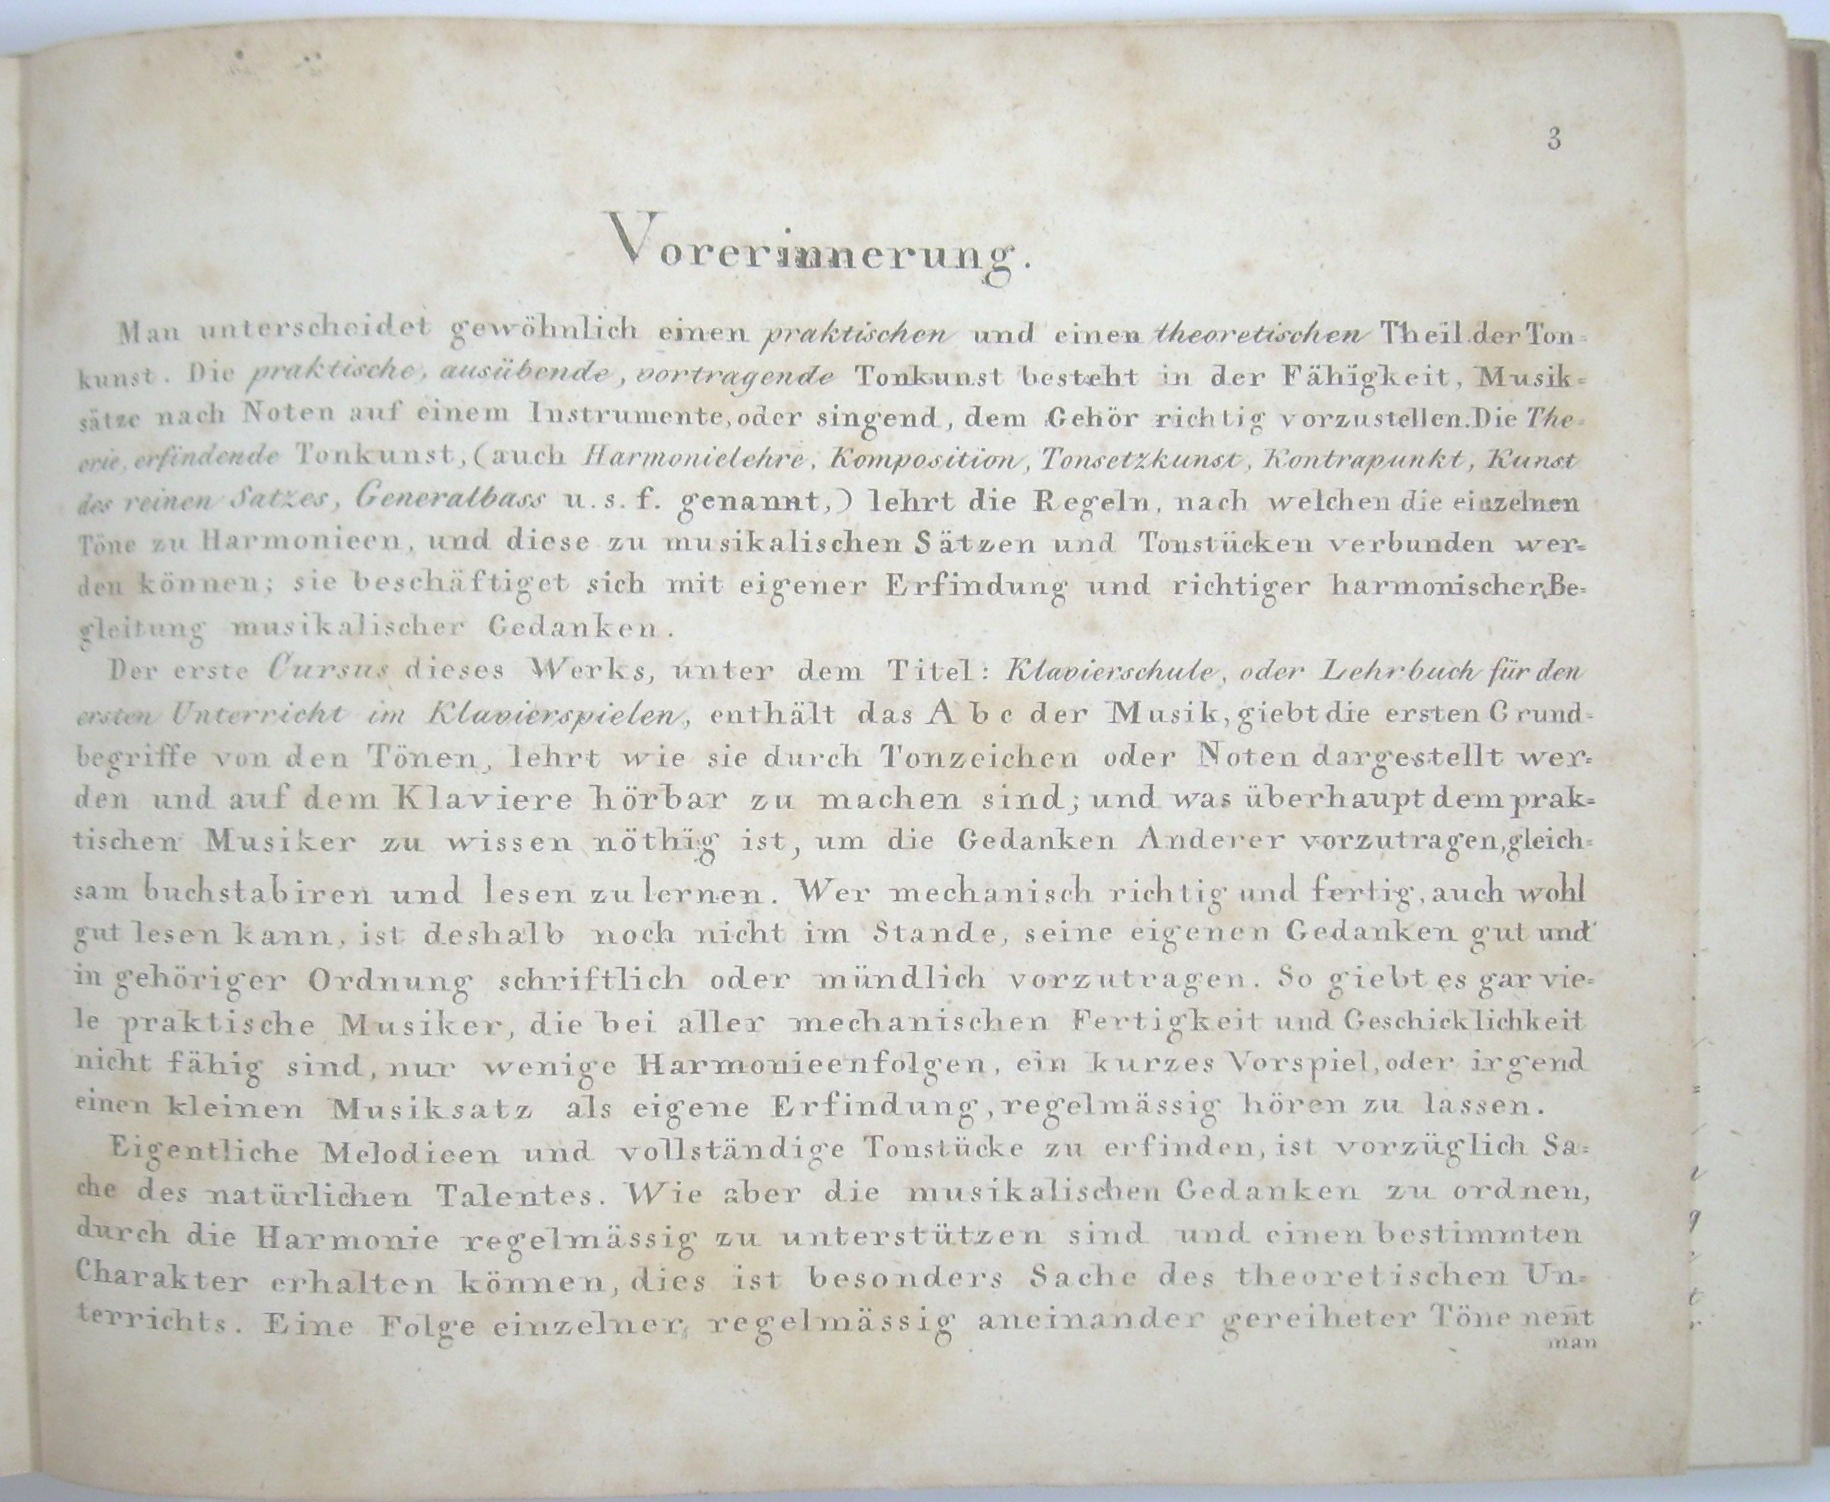 3
Vorerinnerung.
Man unterscheidet gewöhnlich einen praktischen und einen theoretischen Theil der Ton=
kunst. Die praktische, ausübende, vortragende Tonkunst besteht in der Fähigkeit, Musik=
sätze nach Noten auf einem Instrumente, oder singend, dem Gehör richtig vorzustellen. Die The=
orie, erfindende Tonkunst, (auch Harmonielehre, Komposition, Tonsetzkunst, Kontrapunkt, Kunst
des reinen Satzes, Generalbass u. s. f. genannt,) lehrt die Regeln, nach welchen die einzelnen
Töne zu Harmonieen, und diese zu musikalischen Sätzen und Tonstücken verbunden wer=
den können; sie beschäftiget sich mit eigener Erfindung und richtiger harmonischer Be=
gleitung musikalischer Gedanken.
Der erste Cursus dieses Werks, unter dem Titel: Klavierschule, oder Lehrbuch für den
ersten Unterricht im Klavierspielen, enthält das A b c der Musik, giebt die ersten Grund=
begriffe von den Tönen, lehrt wie sie durch Tonzeichen oder Noten dargestellt wer=
den und auf dem Klaviere hörbar zu machen sind; und was überhaupt dem prak=
tischen Musiker zu wissen nöthig ist, um die Gedanken Anderer vorzutragen, gleich=
sam buchstabiren und lesen zu lernen. Wer mechanisch richtig und fertig, auch wohl
gut lesen kann, ist deshalb noch nicht im Stande, seine eigenen Gedanken gut und
in gehöriger Ordnung schriftlich oder mündlich vorzutragen. So giebt es gar vie=
le praktische Musiker, die bei aller mechanischen Fertigkeit und Geschicklichkeit
nicht fähig sind, nur wenige Harmonieenfolgen, ein kurzes Vorspiel, oder irgend
einen kleinen Musiksatz als eigene Erfindung, regelmässig hören zu lassen.
Eigentliche Melodieen und vollständige Tonstücke zu erfinden, ist vorzüglich Sa=
che des natürlichen Talentes. Wie aber die musikalischen Gedanken zu ordnen,
durch die Harmonie regelmässig zu unterstützen sind und einen bestimmten
Charakter erhalten können, dies ist besonders Sache des theoretischen Un=
terrichts. Eine Folge einzelner, regelmässig aneinander gereiheter Töne nen̄t
man